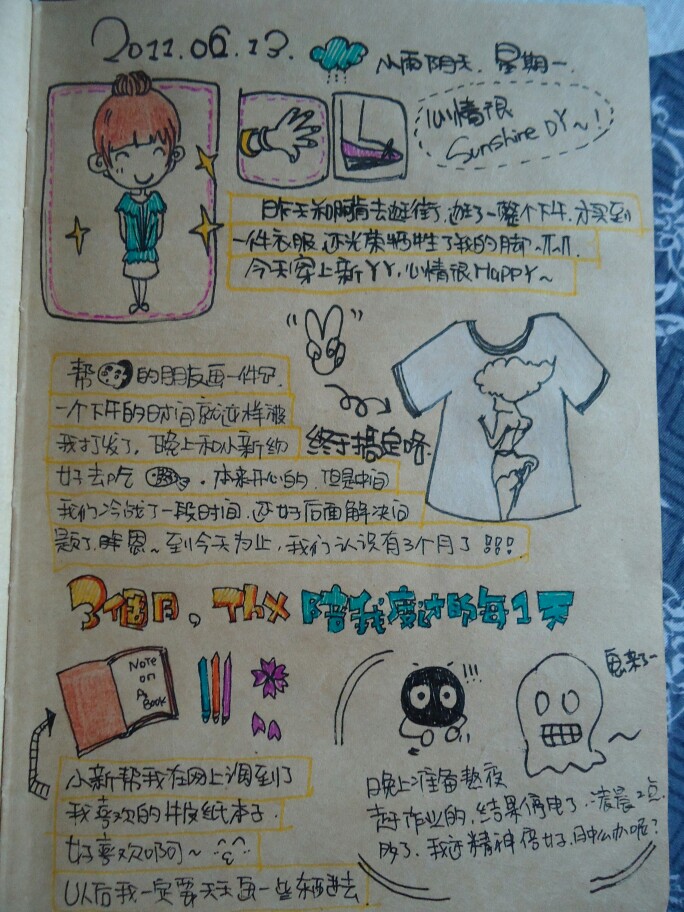 2011.06.13.
小雨阴天. 星期一.
心情很
Sunshine DY~!
昨天和 去逛街,逛了一整个下午,才买到
一件衣服.还光荣牺牲了我的脚.爪爪.
今天穿上新YY,心情很HAPPY~
帮 的朋友画一件T.
一个下午的时间就这样被
我打发了, 晚上和小新约
终于搞定咯
好去吃 . 本来开心的, 但是中间
我们冷战了一段时间,还好后面解决问
题了, 恩~到今天为止,我们认识有3个月了!!!
3個月, Thx 陪我度过的每1天
NOTE
ON
A
BOOK
!!!
鬼来了~
小新帮我在网上淘到了
我喜欢的牛皮纸本子.
好喜欢啊~
以后我一定要天天画一些东西进去
晚上准备熬夜
赶作业的,结果停电了.凌晨2点
多了,我还精神倍好,肿么办呢?